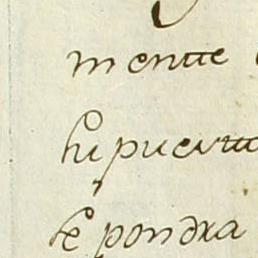 mente
hi puerta
se pondra